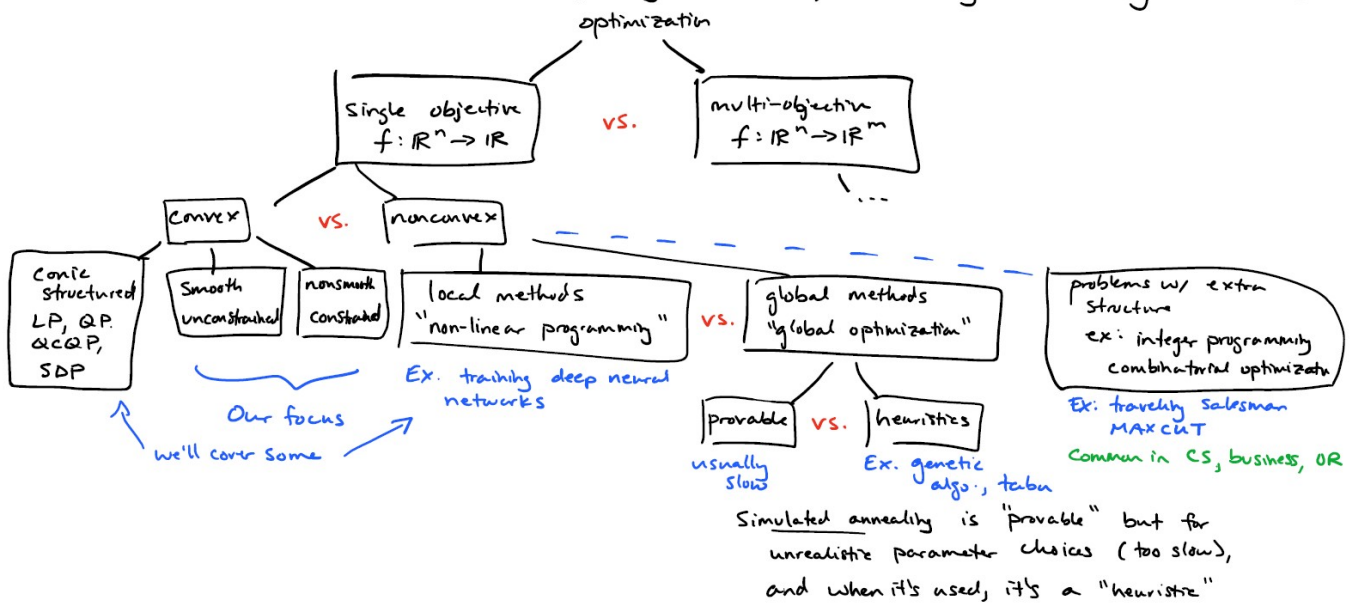 optimization
single objective
f: ℝⁿ → ℝ
vs.
multi-objective
f: ℝⁿ → ℝᵐ
...
convex
vs.
nonconvex
conic
structured
LP, QP.
QCQP,
SDP
smooth
unconstrained
nonsmooth
constrained
local methods
"non-linear programming"
vs.
global methods
"global optimization"
problems w/ extra
structure
ex: integer programming
combinatorial optimizatn
Our focus
we'll cover some
Ex. training deep neural
networks
provable
vs.
heuristics
usually
slow
Ex. genetic
algo., tabu
Ex: traveling salesman
MAXCUT
Common in CS, business, OR
Simulated annealing is "provable" but for
unrealistic parameter choices (too slow),
and when it's used, it's a "heuristic"